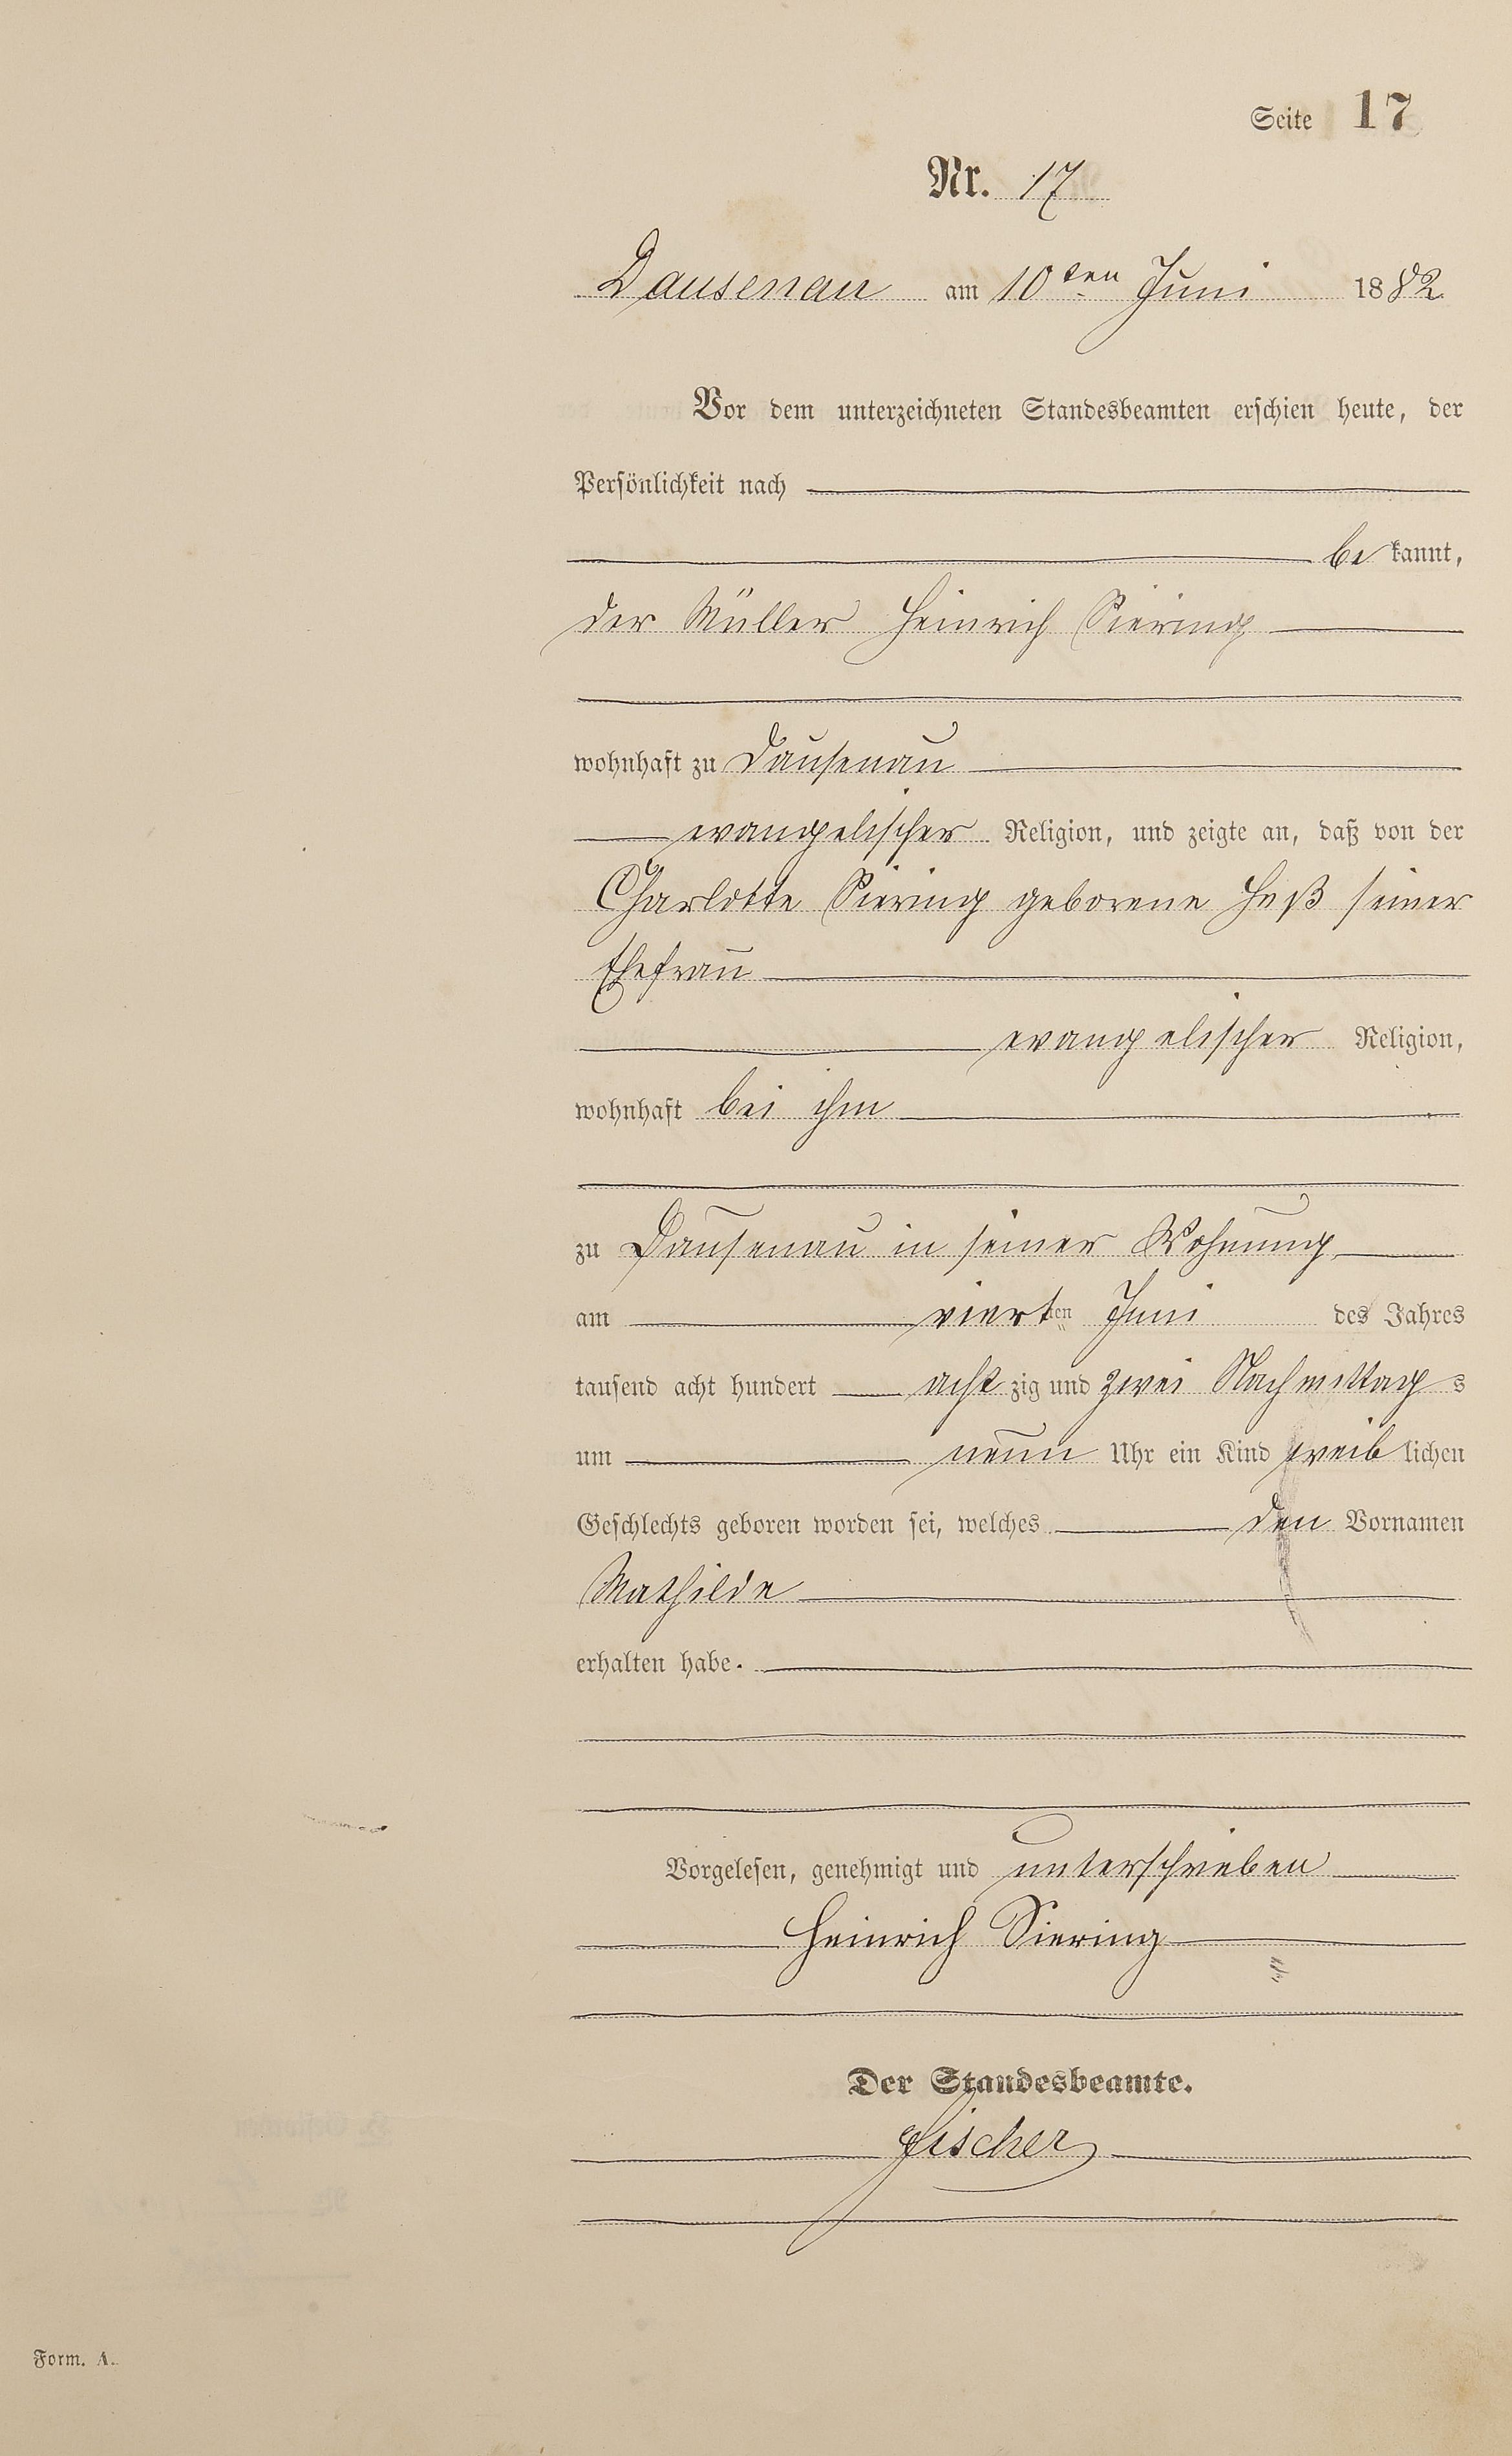 Seite 17
Nr. 17
Dausenau am 10ten Juni 1882.
Vor dem unterzeichneten Standesbeamten erschien heute, der
Persönlichkeit nach
be kannt,
der Müller Heinrich Siering
wohnhaft zu Dausenau
evangelischer Religion, und zeigte an, daß von der
Charlotte Siering geborene Heß seiner
Ehefrau
evangelischer Religion,
wohnhaft bei ihm
zu Dausenau in seiner Wohnung
am vierten Juni des Jahres
tausend acht hundert acht zig und zwei Nachmittags
um neun Uhr ein Kind weib lichen
Geschlechts geboren worden sei, welches den Vornamen
Mathilde
erhalten habe.
Vorgelesen, genehmigt und unterschrieben
Heinrich Siering
Der Standesbeamte.
Fischer
Form. A.